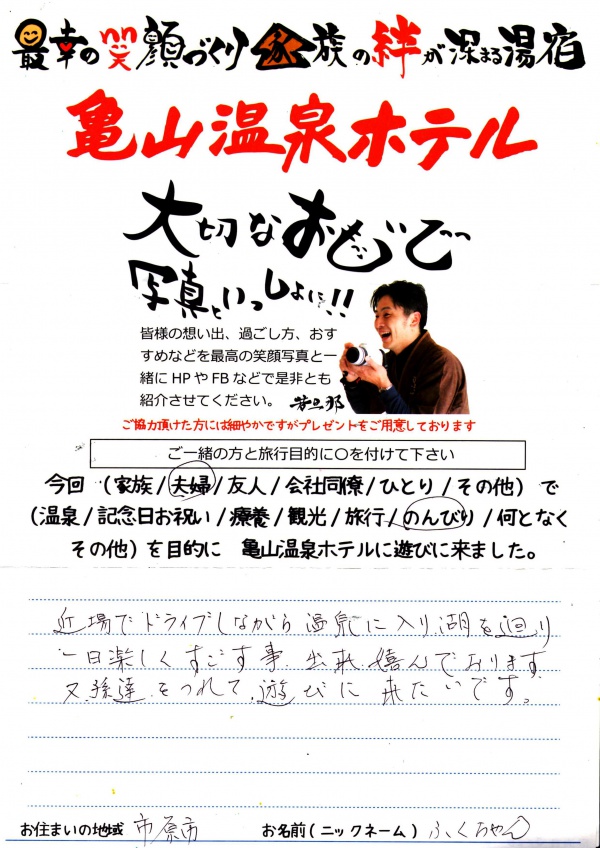 最幸の笑顔づくり 家族の絆が深まる湯宿
亀山温泉ホテル
大切なおもいで
写真といっしょに!!
皆様の想い出、過ごし方、おす
すめなどを最高の笑顔写真と一
緒にHPやFBなどで是非とも
紹介させてください。 若旦那
ご協力頂けた方には細やかですがプレゼントをご用意しております
ご一緒の方と旅行目的に〇を付けて下さい
今回 (家族/夫婦/友人/会社同僚/ひとり/その他) で
(温泉/記念日お祝い/療養/観光/旅行/のんびり/何となく
その他) を目的に 亀山温泉ホテルに遊びに来ました。
近場でドライブしながら温泉に入り湖を廻り
一日楽しくすごす事出来嬉んでおります
又孫達をつれて遊びに来たいです。
お住まいの地域 市原市 お名前(ニックネーム) ふくちゃん